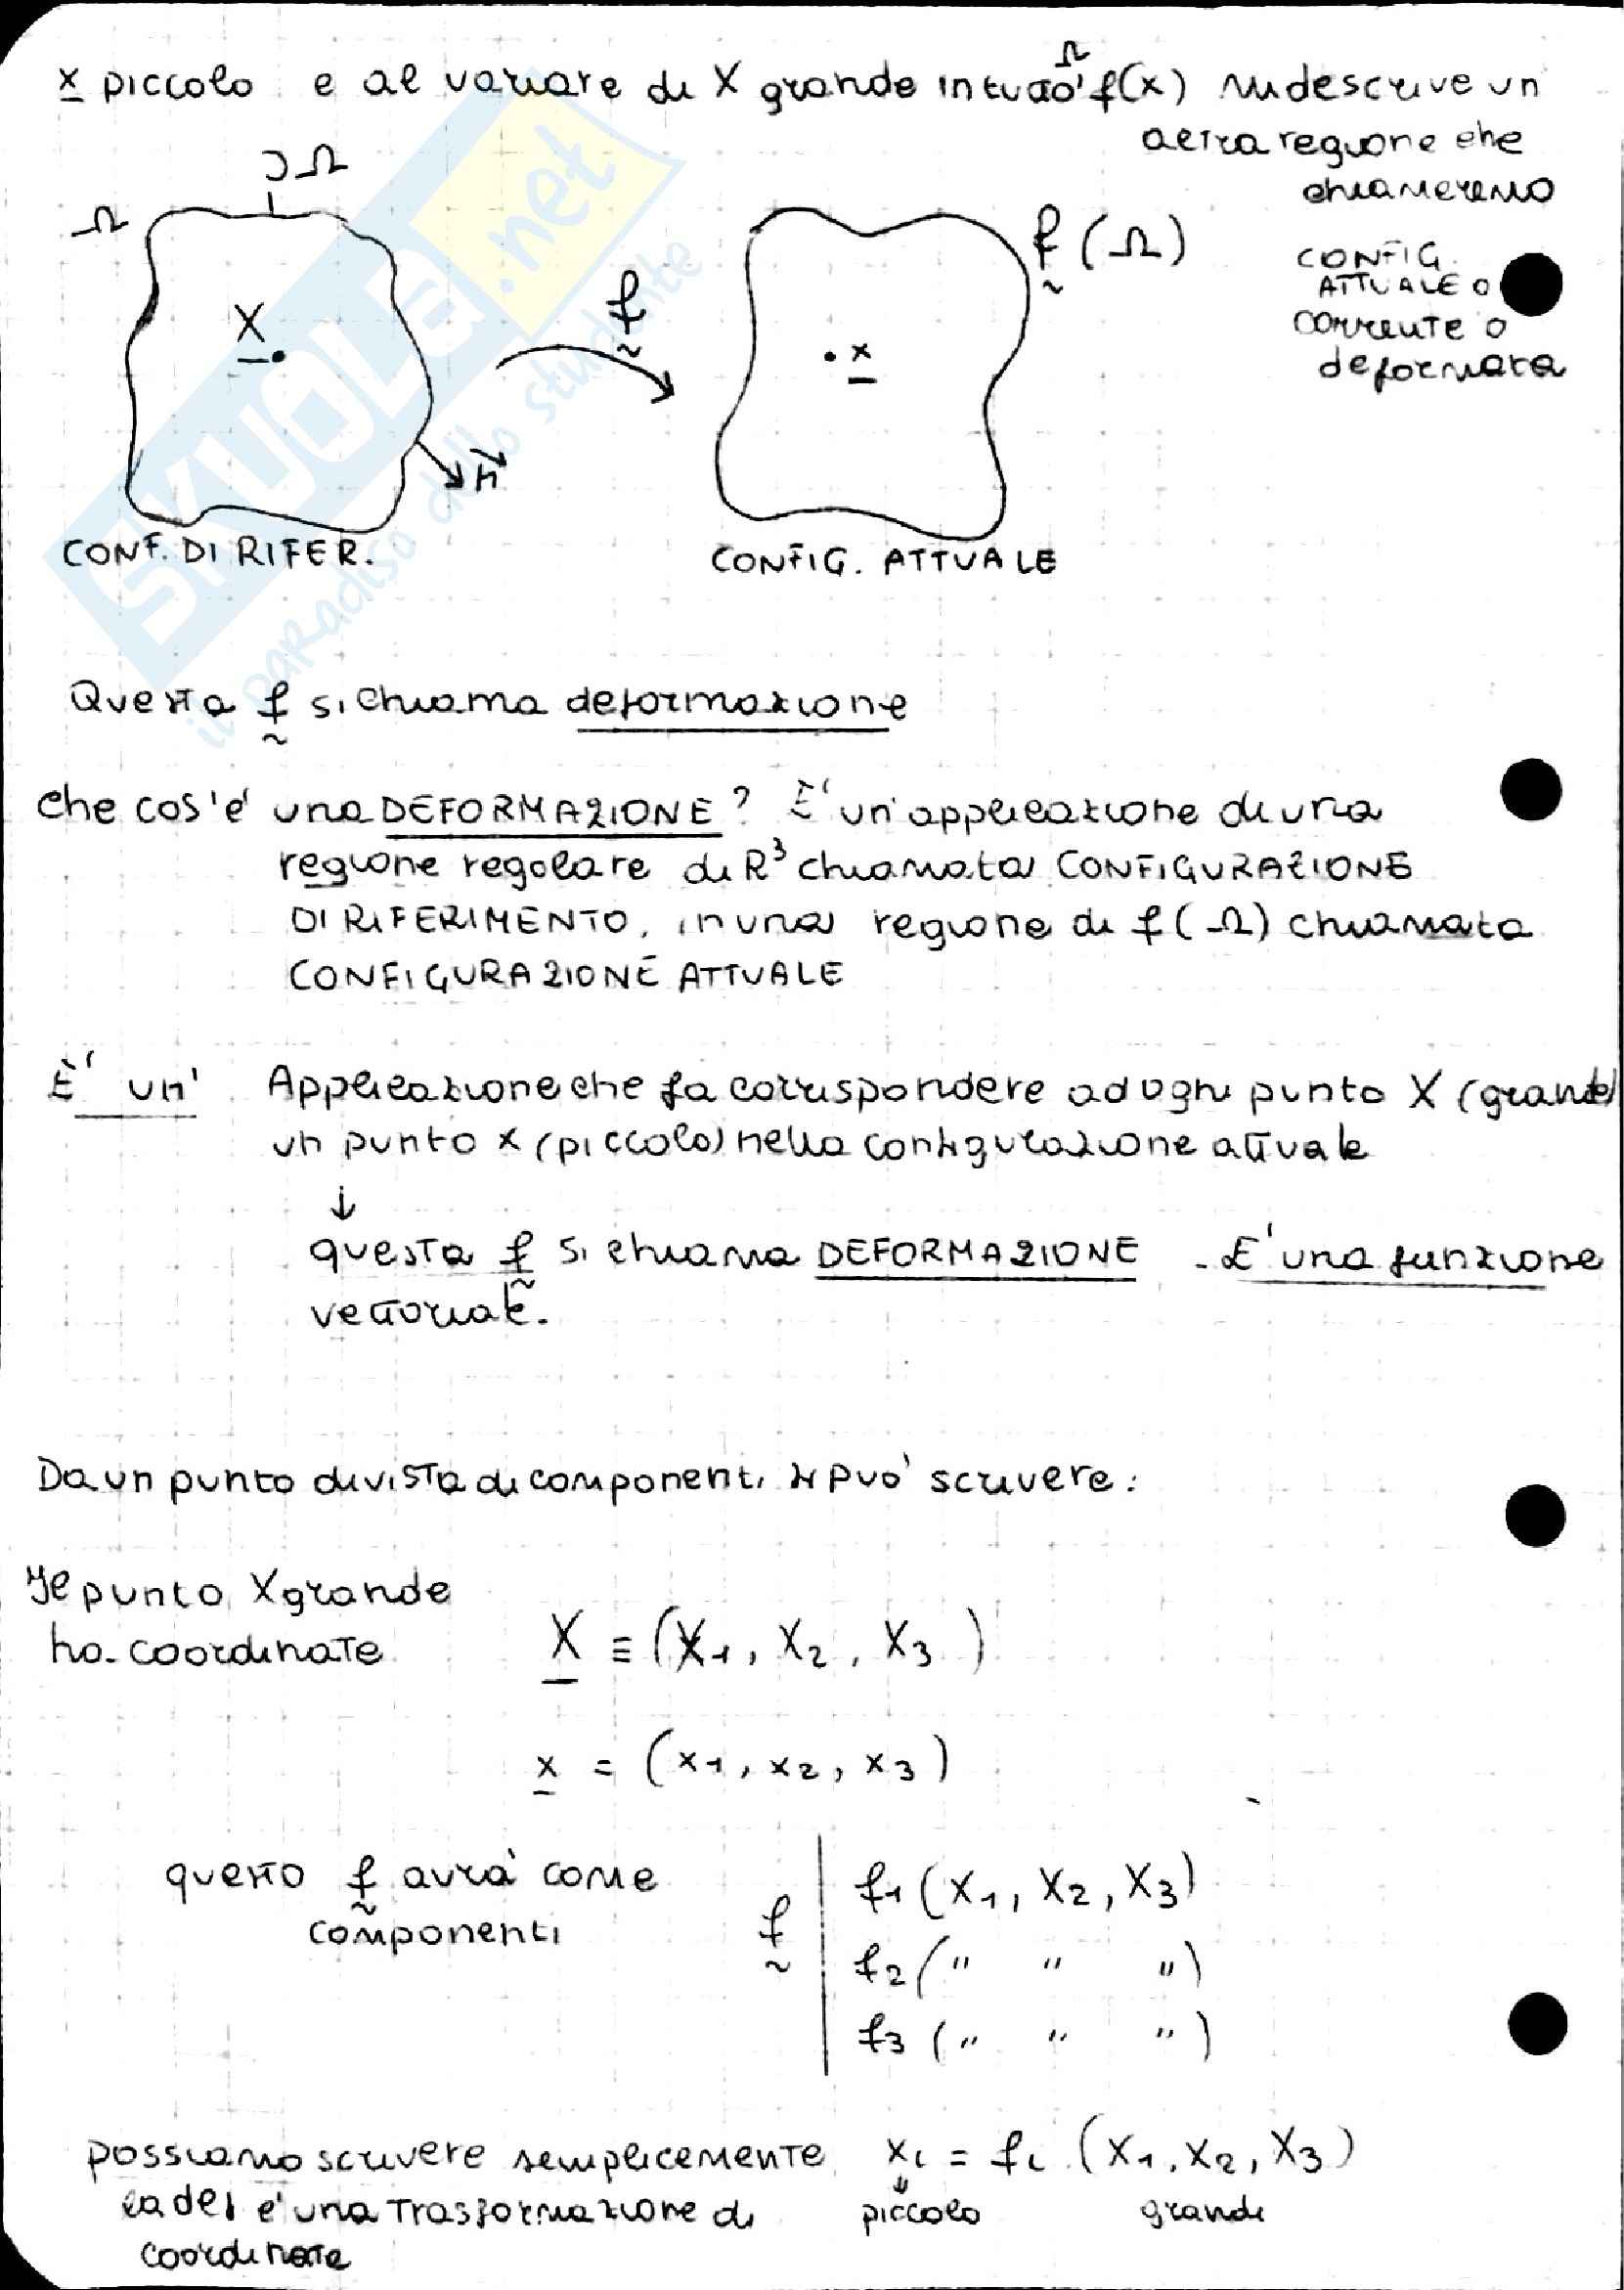 x piccolo e al variare di X grande in tutto Ω f(x) mi descrive un
altra regione che
chiameremo
CONFIG.
ATTUALE o
corrente o
deformata
∂Ω
Ω
X
f
n
f(Ω)
x
CONF. DI RIFER.
CONFIG. ATTUALE
SKUOLA.net
il paradiso dello studente
Questa f si chiama deformazione
che cos'e' una DEFORMAZIONE? E' un'applicazione di una
regione regolare di R³ chiamata CONFIGURAZIONE
DI RIFERIMENTO, in una regione di f(Ω) chiamata
CONFIGURAZIONE ATTUALE
E' un' Applicazione che fa corrispondere ad ogni punto X (grande)
un punto x (piccolo) nella configurazione attuale
↓
questa f si chiama DEFORMAZIONE - E' una funzione
vettoriale.
Da un punto di vista di componenti si puo' scrivere:
Il punto X grande
ha coordinate X ≡ (X1, X2, X3)
x = (x1, x2, x3)
questo f avra' come
componenti
f | f1 (X1, X2, X3)
f2 (" " ")
f3 (" " ")
possiamo scrivere semplicemente xi = fi (X1, X2, X3)
la def e' una trasformazione di piccolo grandi
coordinate